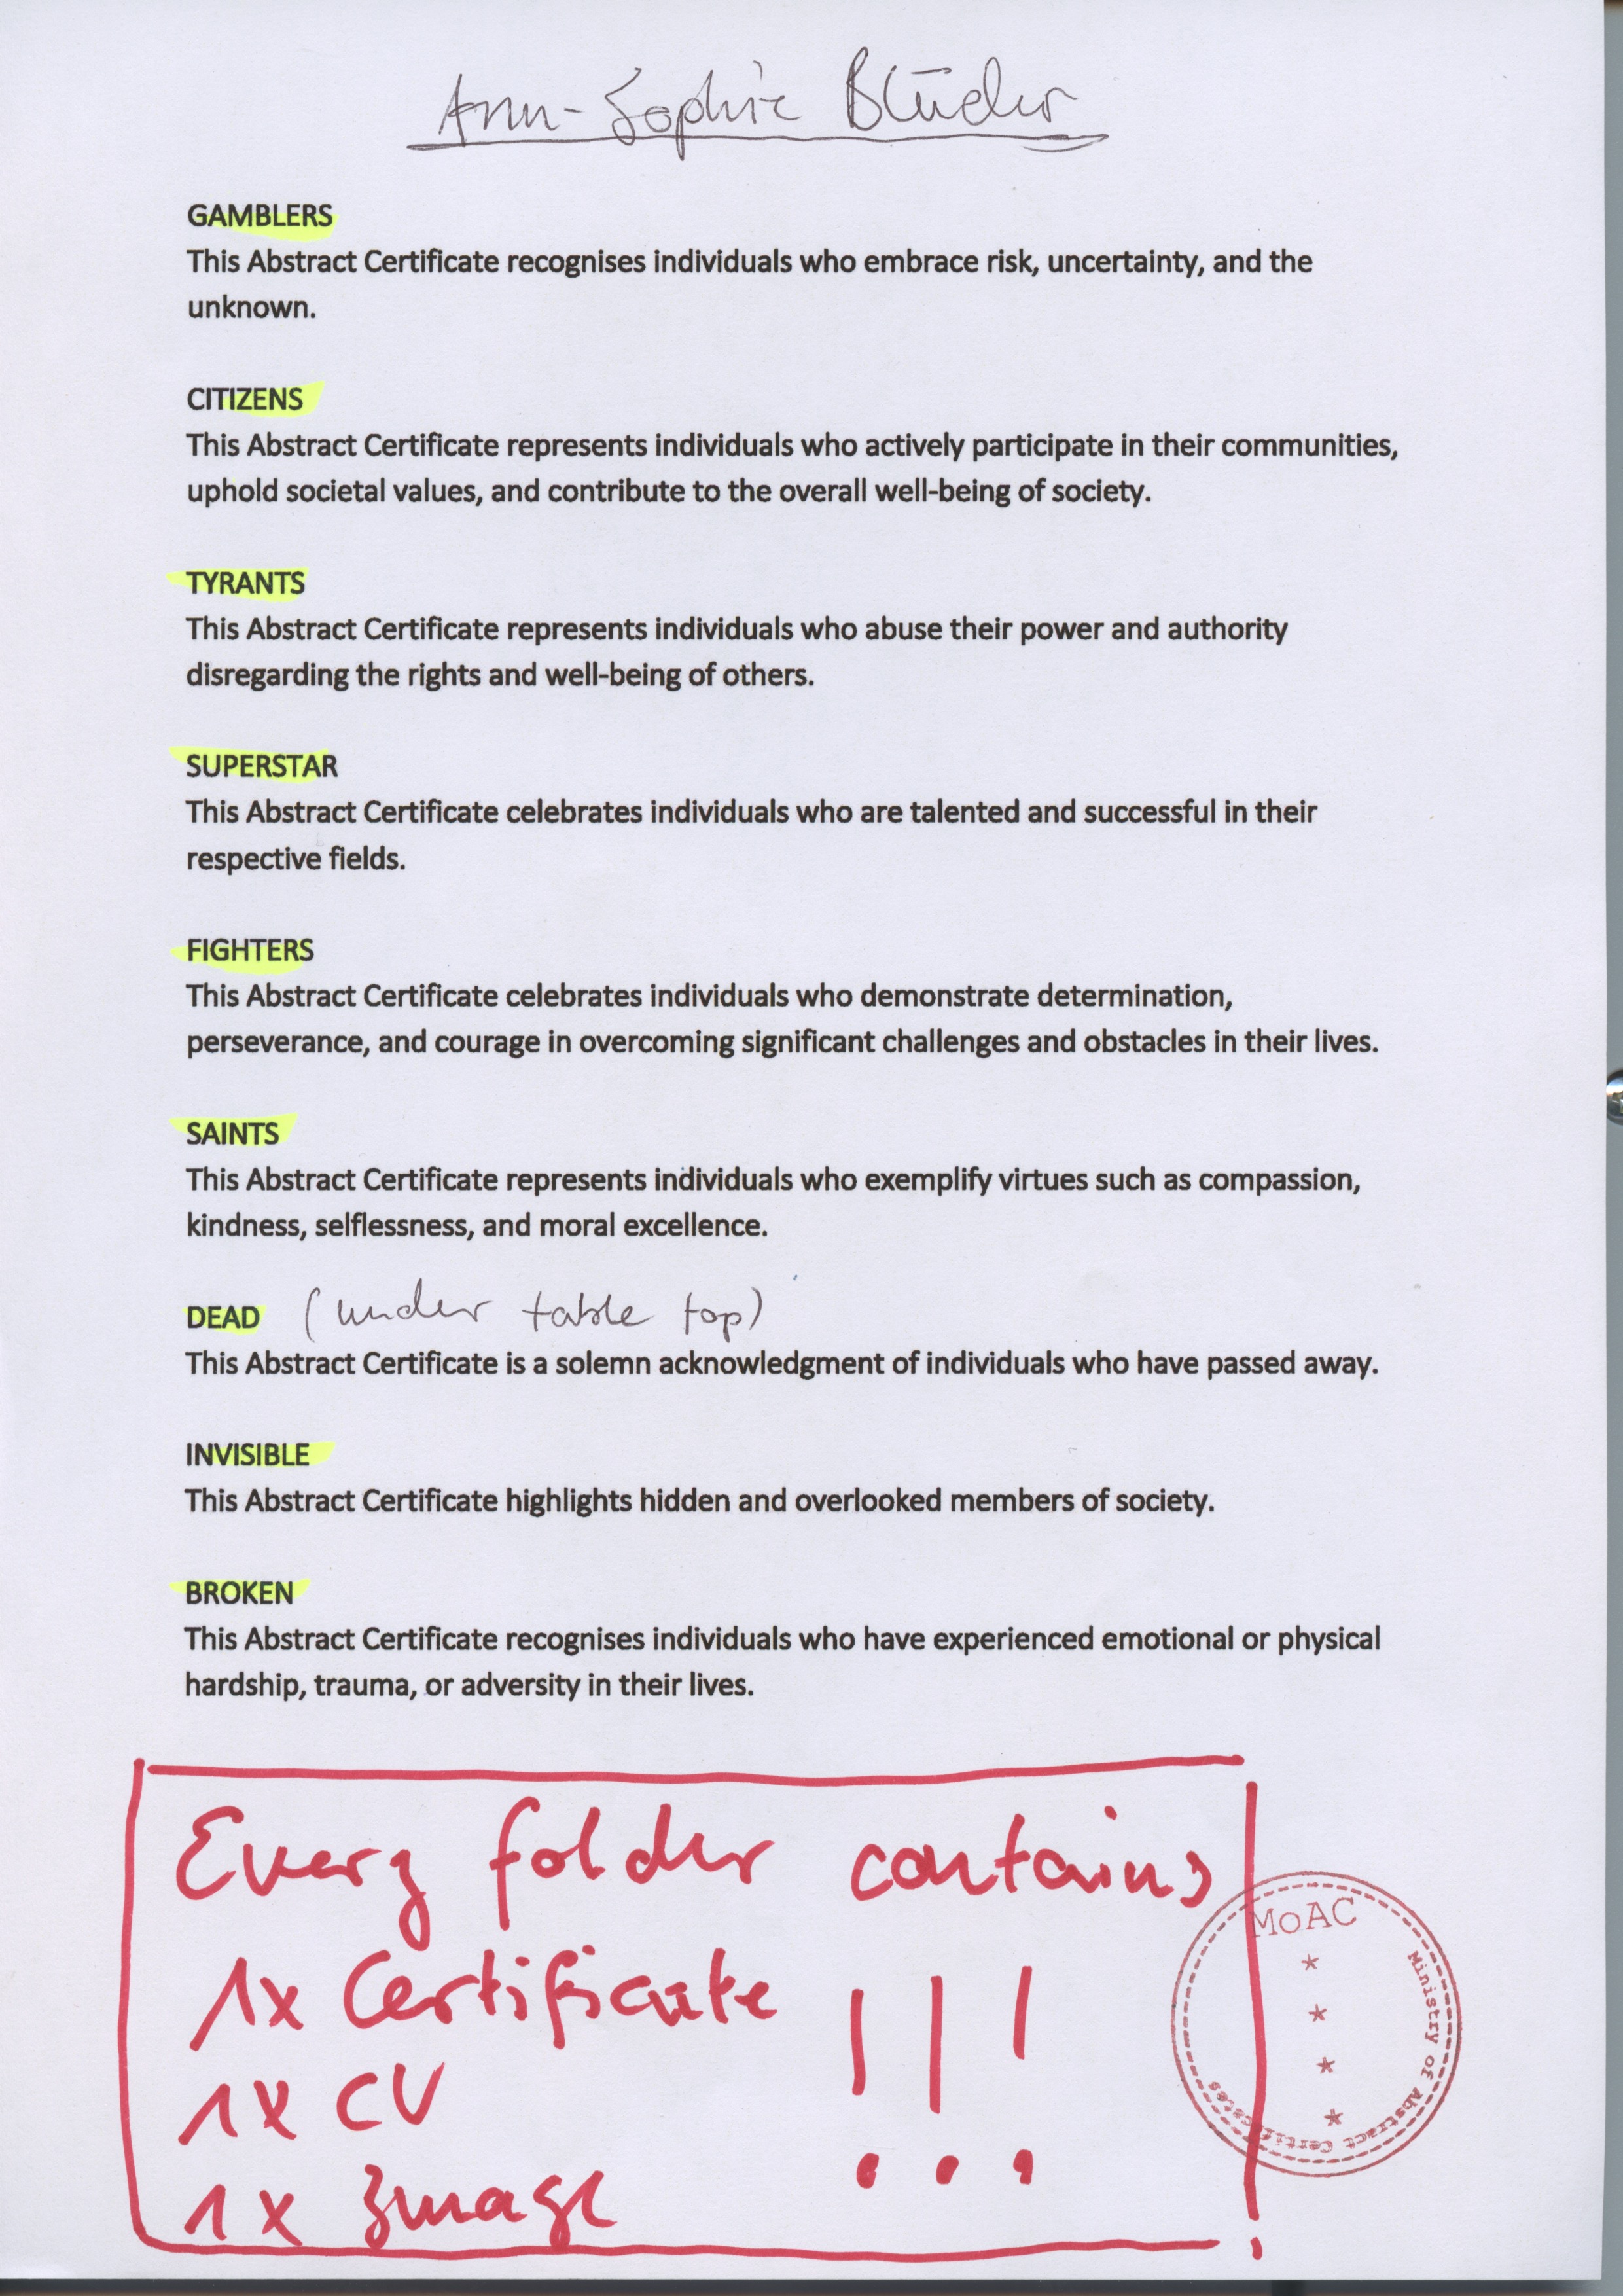 Ann-Sophie
GAMBLERS
This Abstract Certificate recognises individuals who embrace risk, uncertainty, and the
unknown.
CITIZENS
This Abstract Certificate represents individuals who actively participate in their communities,
uphold societal values, and contribute to the overall well-being of society.
TYRANTS
This Abstract Certificate represents individuals who abuse their power and authority
disregarding the rights and well-being of others.
SUPERSTAR
This Abstract Certificate celebrates individuals who are talented and successful in their
respective fields.
FIGHTERS
This Abstract Certificate celebrates individuals who demonstrate determination,
perseverance, and courage in overcoming significant challenges and obstacles in their lives.
SAINTS
This Abstract Certificate represents individuals who exemplify virtues such as compassion,
kindness, selflessness, and moral excellence.
DEAD (under table top)
This Abstract Certificate is a solemn acknowledgment of individuals who have passed away.
INVISIBLE
This Abstract Certificate highlights hidden and overlooked members of society.
BROKEN
This Abstract Certificate recognises individuals who have experienced emotional or physical
hardship, trauma, or adversity in their lives.
Every folder contains
1x Certificate !!!
1x CV
1x Image
MoAC
Ministry of Abstract Certificates